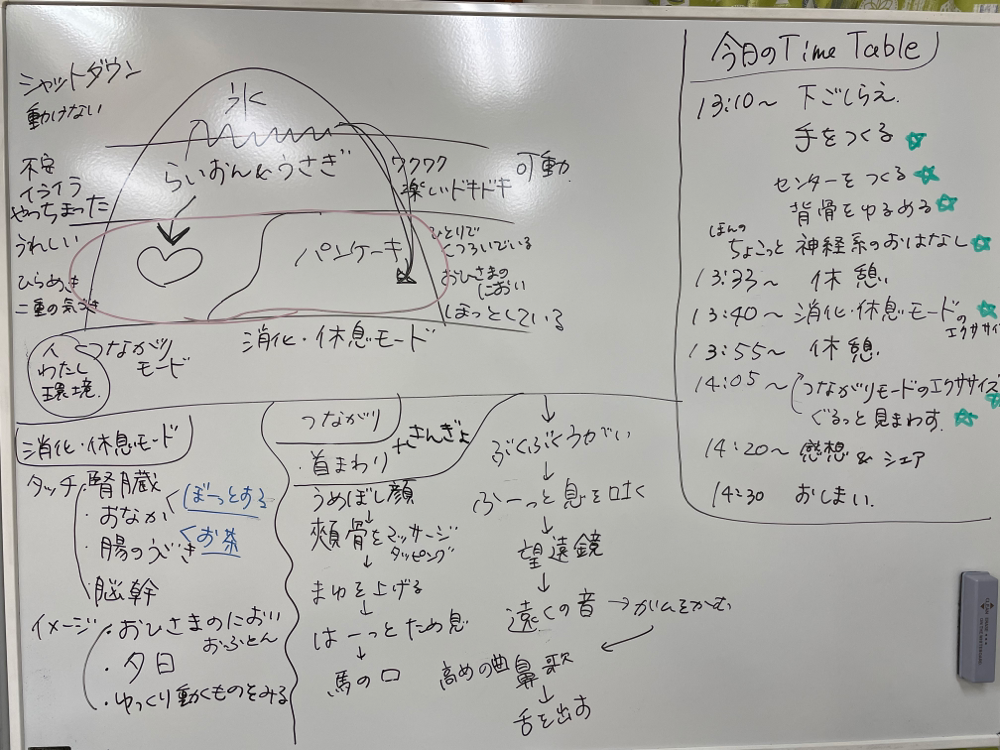 シャットダウン
動けない
氷
不安
イライラ
やっちまった
らいおん&うさぎ
ワクワク
楽しいドキドキ
可動
うれしい
ひらめき
二重の気づき
パンケーキ
ひとりで
くつろいでいる
おひさまの
におい
ほっとしている
人
わたし
環境
つながり
モード
消化・休息モード
今日のTime Table
13:10〜 下ごしらえ.
手をつくる
センターをつくる
背骨をゆるめる
ほんの
ちょこっと 神経系のおはなし
13:33〜 休憩
13:40〜 消化・休息モードの
エクササイズ
13:55〜 休憩
14:05〜 つながりモードのエクササイズ
ぐるっと見まわす
14:20〜 感想 & シェア
14:30 おしまい.
消化・休息モード
タッチ・腎臓
・おなか
ぼーっとする
・腸のうごき
お茶
・脳幹
イメージ・おひさまのにおい
おふとん
・夕日
・ゆっくり動くものをみる
つながり
・首まわり
さんぎょ
うめぼし顔
↓
頬骨をマッサージ
タッピング
↓
まゆを上げる
↓
はーっとため息
↓
馬の口
↓
ぶくぶくうがい
↓
ふーっと息を吐く
↓
望遠鏡
↓
遠くの音→ガムをかむ
高めの曲 鼻歌
↓
舌を出す